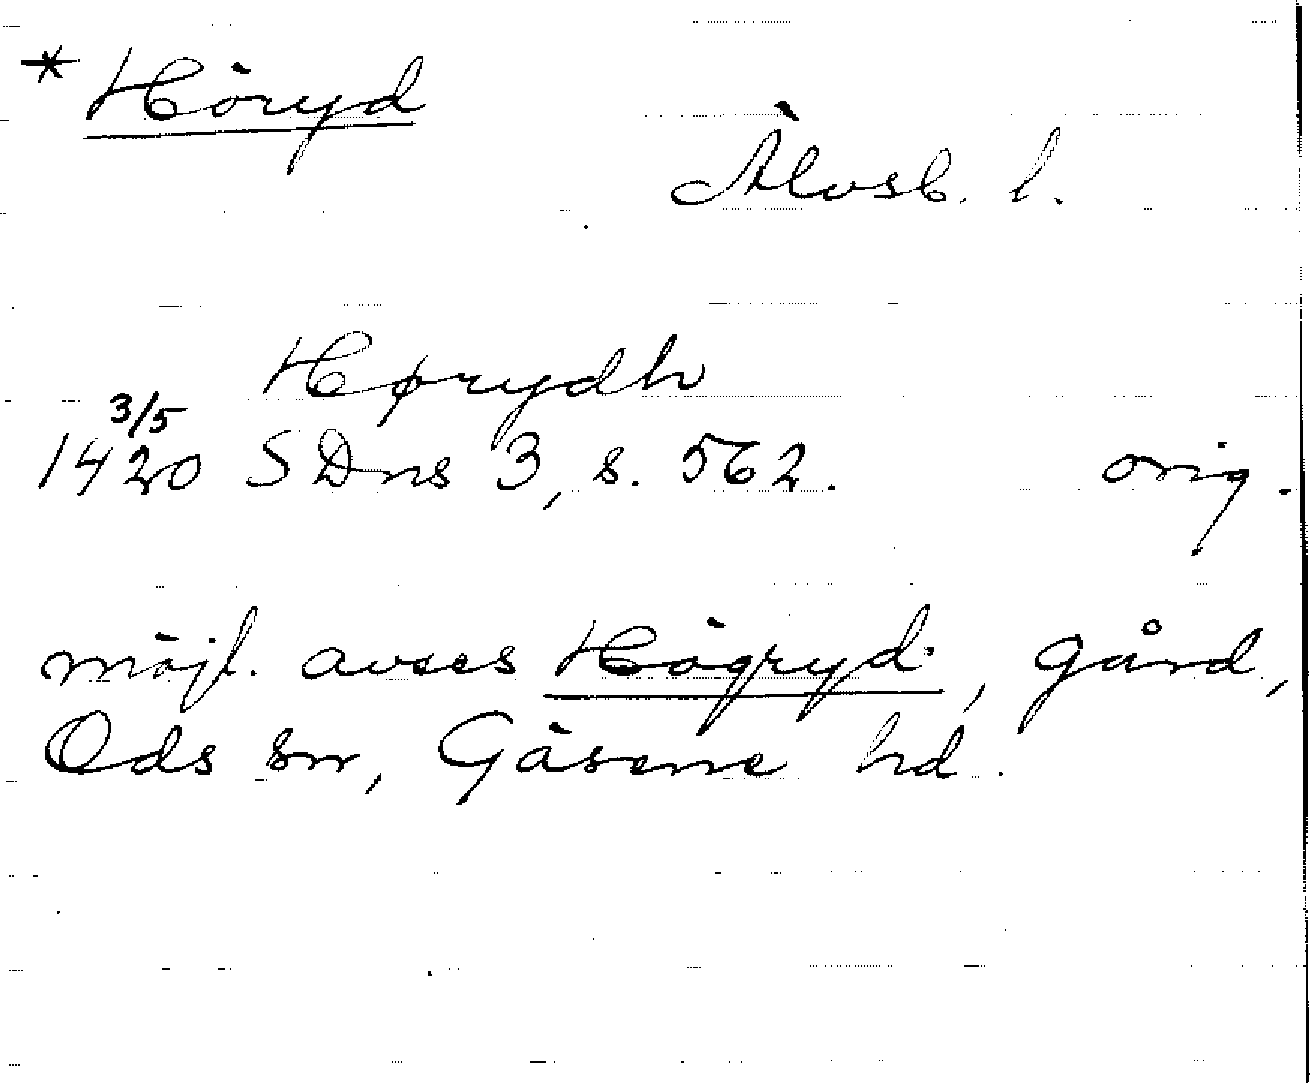 * Höryd
Älvsb. l.
Hørydh
3/5
1420 SDns 3, s. 562. orig.
möjl. avses Högryd, gård,
Ods sn, Gäsene hd.